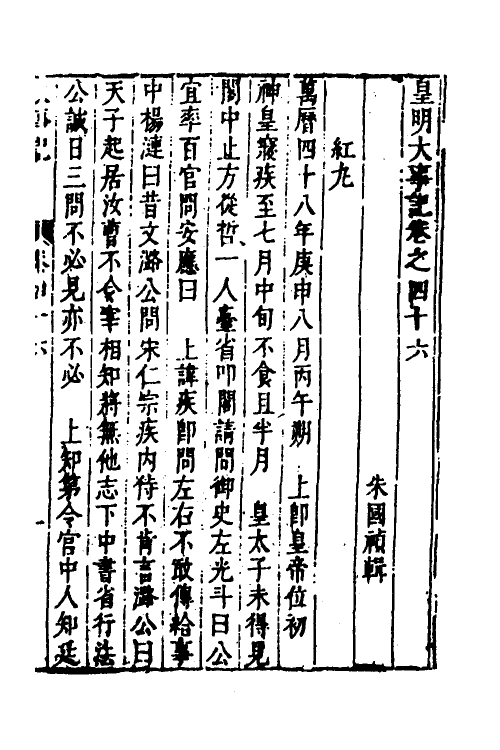 皇明大事記卷之四十六
朱國禎輯
紅丸
萬曆四十八年庚申八月丙午朔　上卽皇帝位初
神皇寢疾至七月中旬不食且半月　皇太子未得見
閣中止方從哲一人臺省叩閣請問御史左光斗曰公
宜率百官問安應曰　上諱疾卽問左右不敢傳給事
中楊漣曰昔文潞公問宋仁宗疾內侍不肯言潞公曰
天子起居汝曹不令宰相知將無他志下中書省行法
公誠日三問不必見亦不必　上知第令宮中人知廷